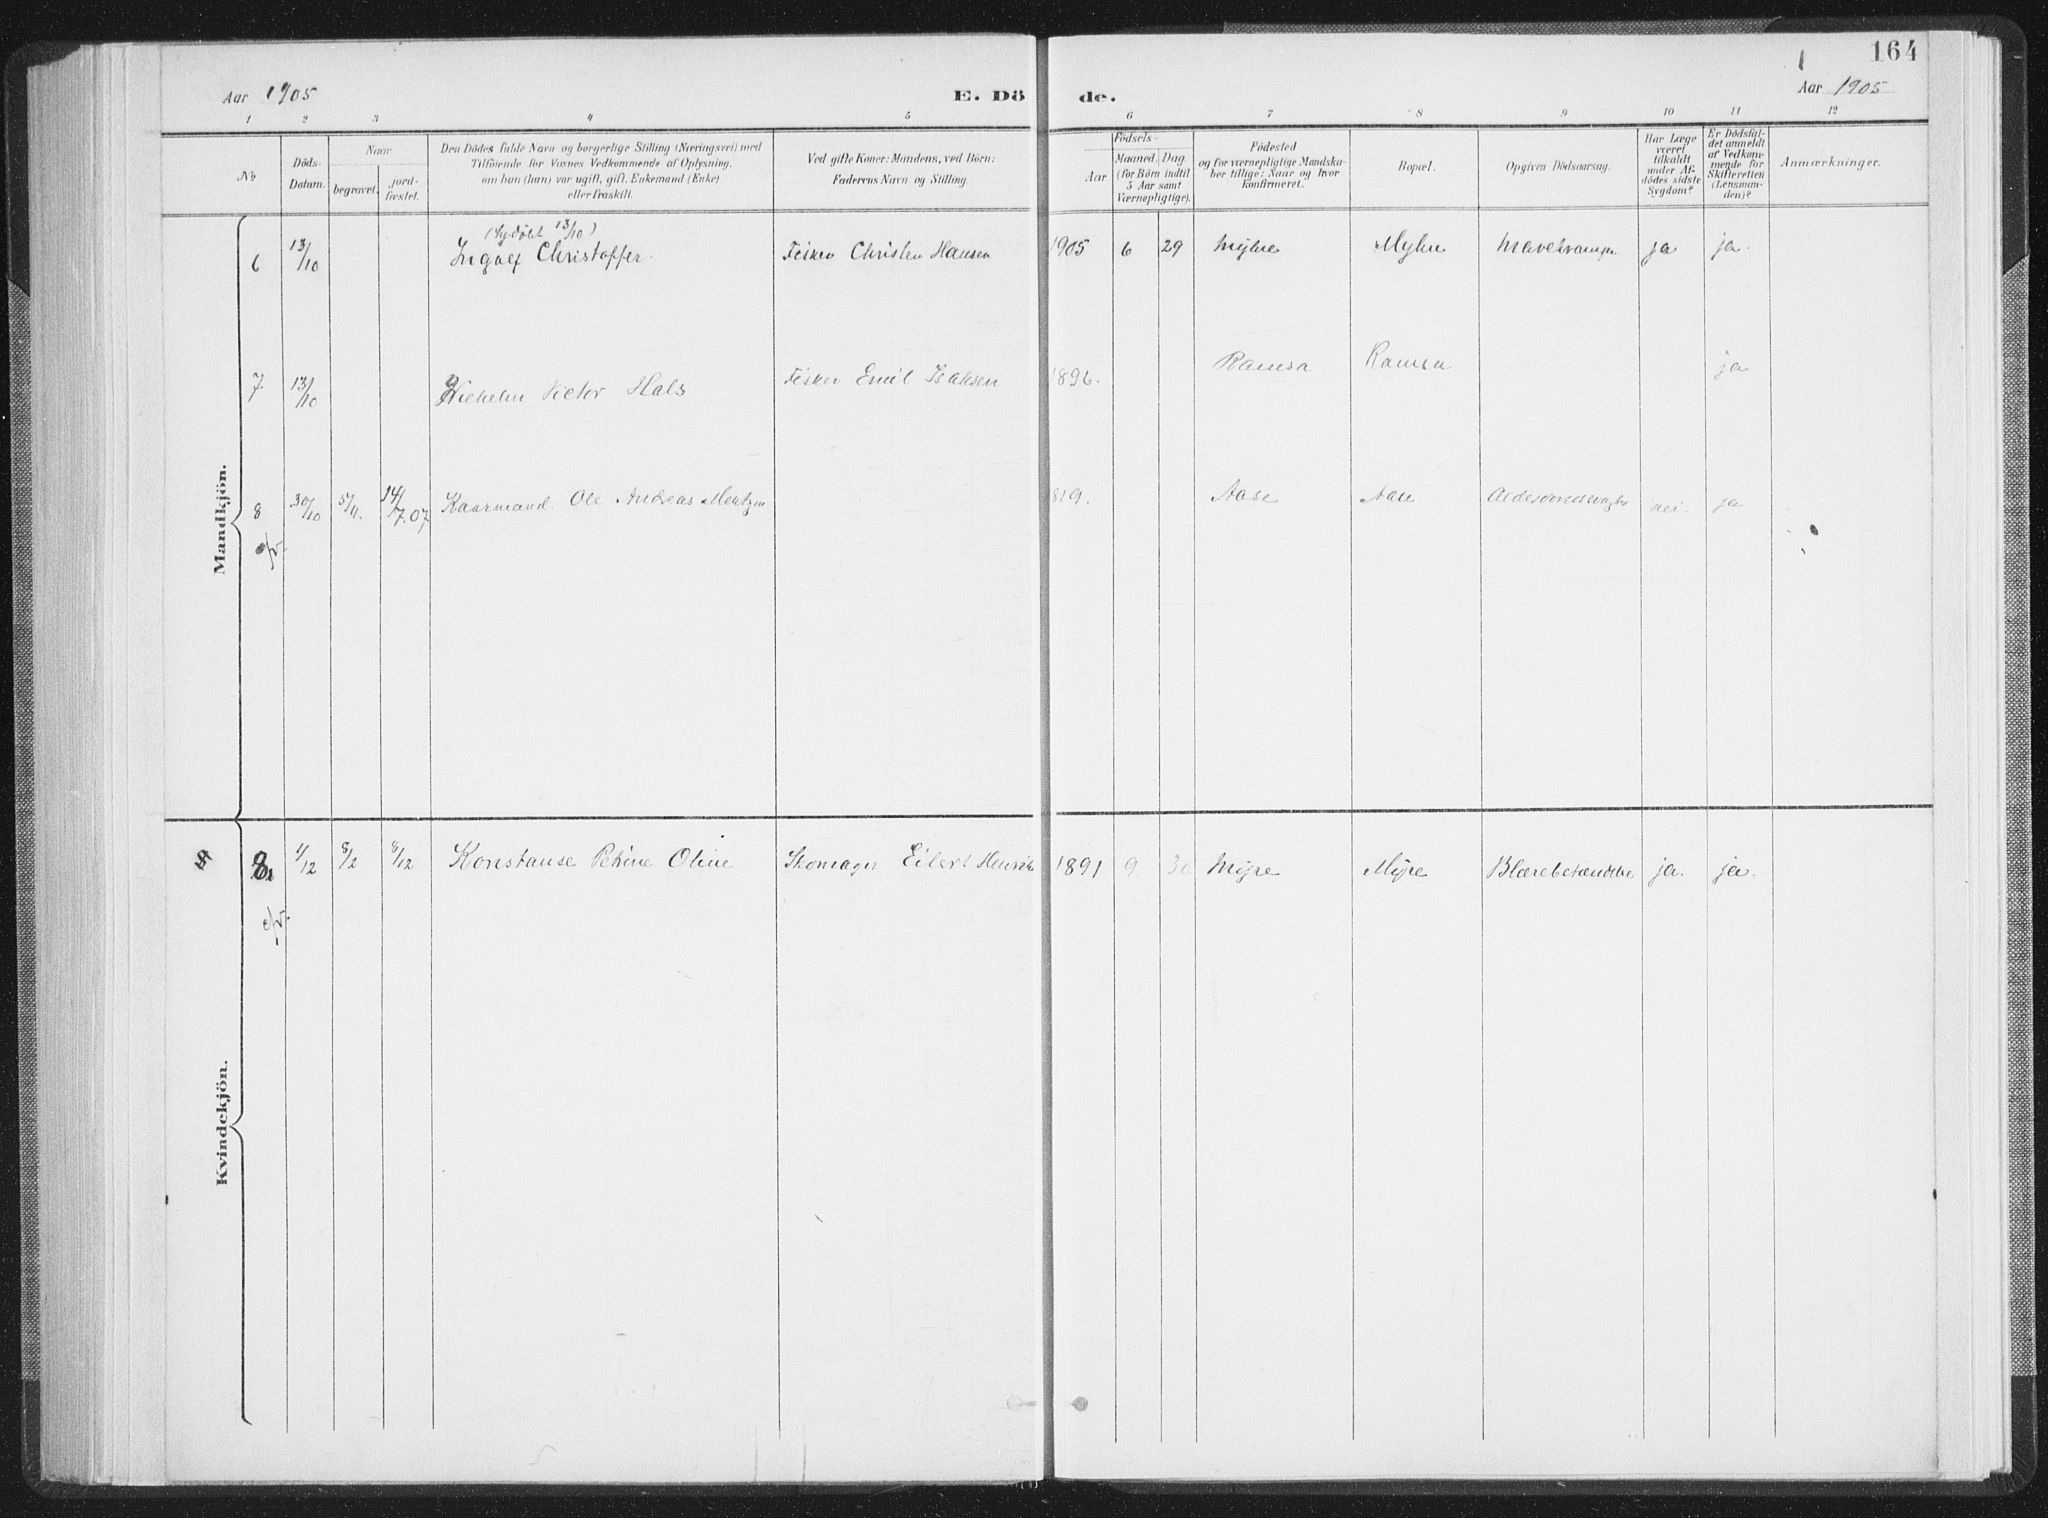 164
Aar 1905
E. Dö
de.
Aar 1905
1 2 3 4 5 6 7 8 9 10 11 12
No
Döds-
Datum.
Naar
begravet.
jord-
fæstet.
Den Dödes fulde Navn og borgerlige Stilling (Næringsvei) med
Tilföiende for Voxnes Vedkommende af Oplysning,
om han (hun) var ugift, gift, Enkemand (Enke)
eller fraskilt.
Ved gifte Koner: Mandens, ved Börn:
Faderens Navn og Stilling.
Födsels-
Aar
Maaned. Dag.
(for Börn indtil
5 Aar samt
Værnepligtige).
Födested
og for værnepligtige Mandska-
ber tillige: Naar og hvor
konfirmeret.
Bopæl.
Opgiven Dödsaarsag.
Har Læge
været
tilkaldt
under Af-
dödes sidste
Sygdom?
Er Dödsfal-
det anmeldt
af Vedkom-
mende for
Skifteretten
(Lensman-
den)?
Anmærkninger.
Mandkjön.
(hjdöbt 13/10)
6 13/10 Ingolf Christoffer Fisker Christen Hansen 1905 6 29 Myhre Myhre ja ja.
7 13/10 Wilhelm Victor Hals Fisker Emil Isaksen 1896. Ramsa Ramsa ja
8 30/10 5/11. 14/7.07 Kaarmand Ole Andreas Mentzen 819. Aase Aase Alderdomssvaghed nei. ja
Kvindekjön.
8 4/12 8/2 8/12 Konstanse Petrine Oline Skomager Eilert Henriks 1891 9 30 Myre Myre Blærebetændelse ja. ja.